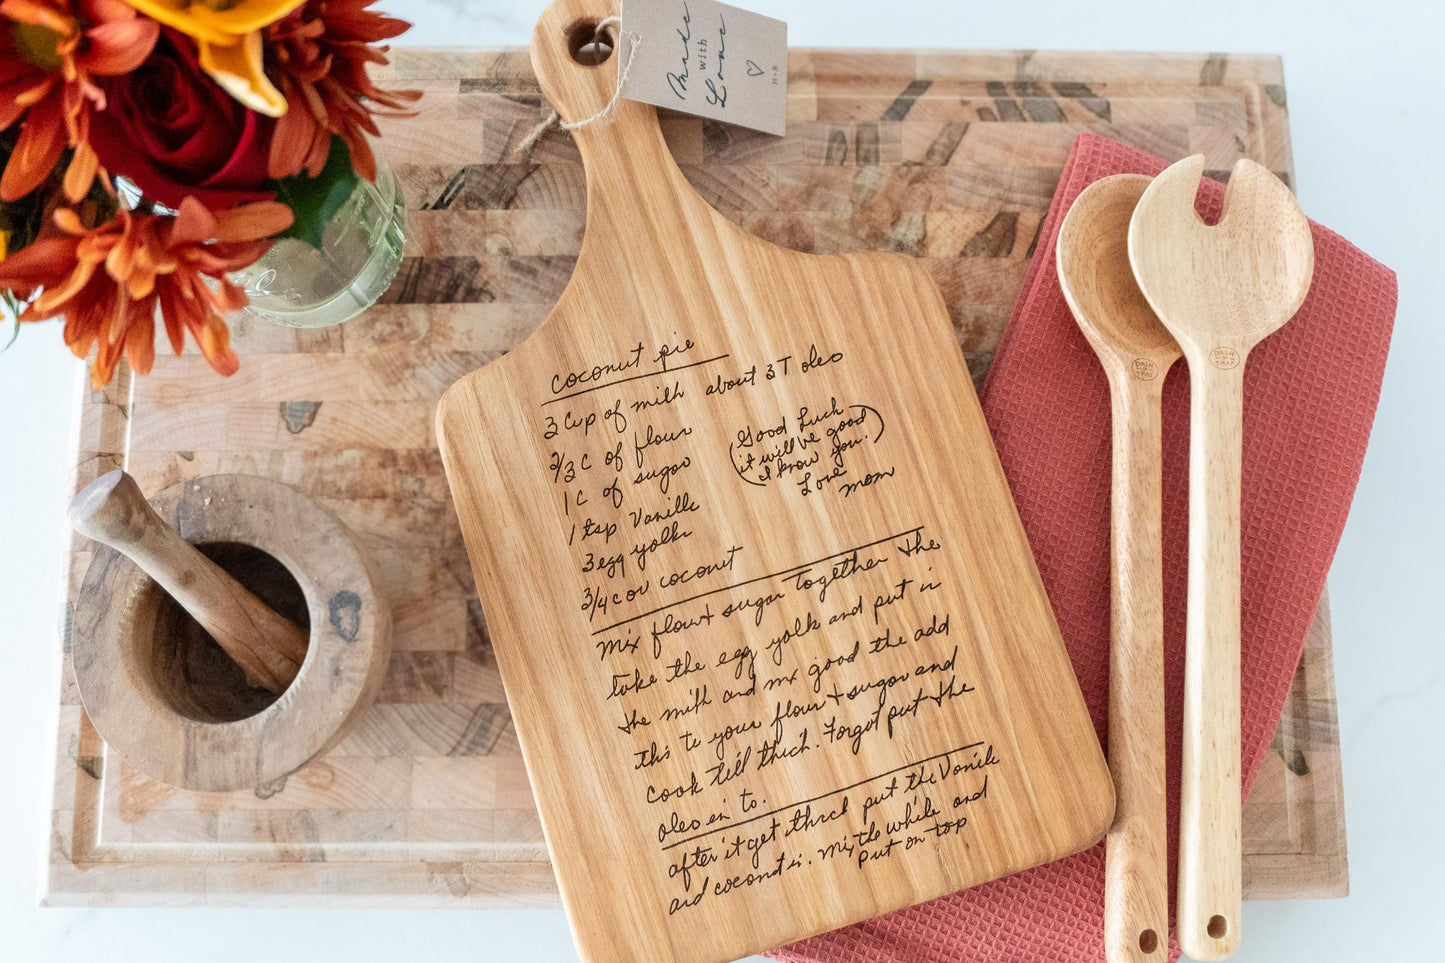 Made
with
Love
H+B
coconut pie
3 Cup of milk about 3 T oleo
2/3 C of flour
1 C of sugar
1 tsp Vanille
3 egg yolks
3/4 cov coconut
(Good Luck
it will be good
I know you.)
Love
mom
mix flour + sugar together the
take the egg yolk and put in
the milk and mx good the add
this to your flour + sugar and
cook tell thich. Forgot put the
oleo in to.
after it get thick put the Vanile
and coconut in. mix the while and
put on top
DASH
OF
THAT
DASH
OF
THAT